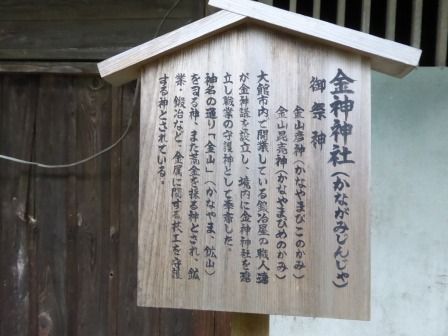 金神神社(かながみじんじゃ)
御祭神
金山彦神(かなやまびこのかみ)
金山毘売神(かなやまびめのかみ)
大館市内で開業している鍛冶屋の職人達
が金神講を設立し、境内に金神神社を建
立し職業の守護神として奉斎した。
神名の通り「金山」(かなやま、鉱山)
を司る神、また荒金を採る神とされ、鉱
業・鍛冶など、金属に関する技工を守護
する神とされている。